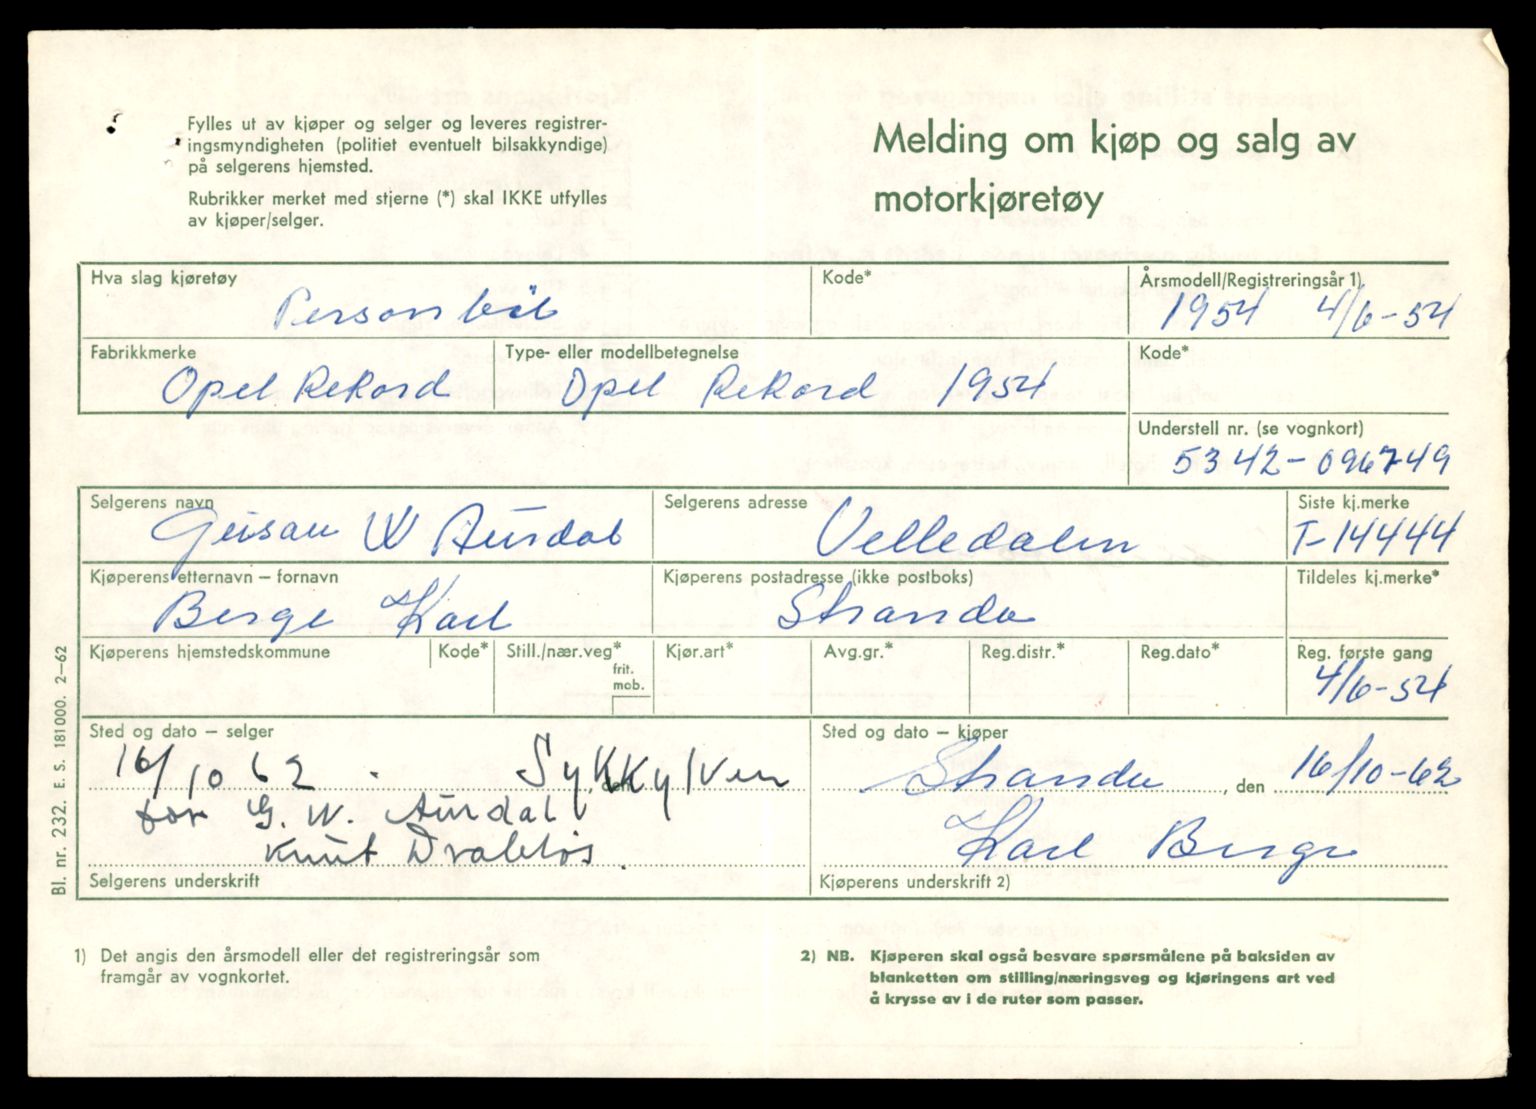 Fylles ut av kjøper og selger og leveres registrer-
ingsmyndigheten (politiet eventuelt bilsakkyndige)
på selgerens hjemsted.
Rubrikker merket med stjerne (*) skal IKKE utfylles
av kjøper/selger.
Melding om kjøp og salg av
motorkjøretøy
Hva slag kjøretøy
Personbil
Kode*
Årsmodell/Registreringsår 1)
1954 4/6-54
Fabrikkmerke
Opel Rekord
Type- eller modellbetegnelse
Opel Rekord 1954
Kode*
Understell nr. (se vognkort)
5342-096749
Selgerens navn
W Aursdal
Selgerens adresse
Velledalen
Siste kj.merke
T-14444
Kjøperens etternavn – fornavn
Berge Karl
Kjøperens postadresse (ikke postboks)
Stranda
Tildeles kj.merke*
Kjøperens hjemstedskommune
Kode*
Still./nær.veg*
frit.
mob.
Kjør.art*
Avg.gr.*
Reg.distr.*
Reg.dato*
Reg. første gang
4/6-54
Sted og dato – selger
16/10 62 . Sykkylven
for G. W. Aursdal
Knut Drabløs.
Selgerens underskrift
Sted og dato – kjøper
Stranda, den 16/10-62
Karl Berge
Kjøperens underskrift 2)
Bl. nr. 232. E. S. 181000. 2–62
1) Det angis den årsmodell eller det registreringsår som
framgår av vognkortet.
2) NB. Kjøperen skal også besvare spørsmålene på baksiden av
blanketten om stilling/næringsveg og kjøringens art ved
å krysse av i de ruter som passer.